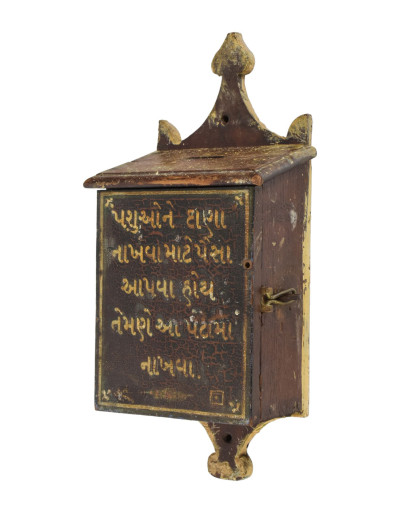 પશુઓને દાણા
નાખવા માટે પૈસા
આપવા હોય
તેમણે આ પેટીમાં
નાખવા.